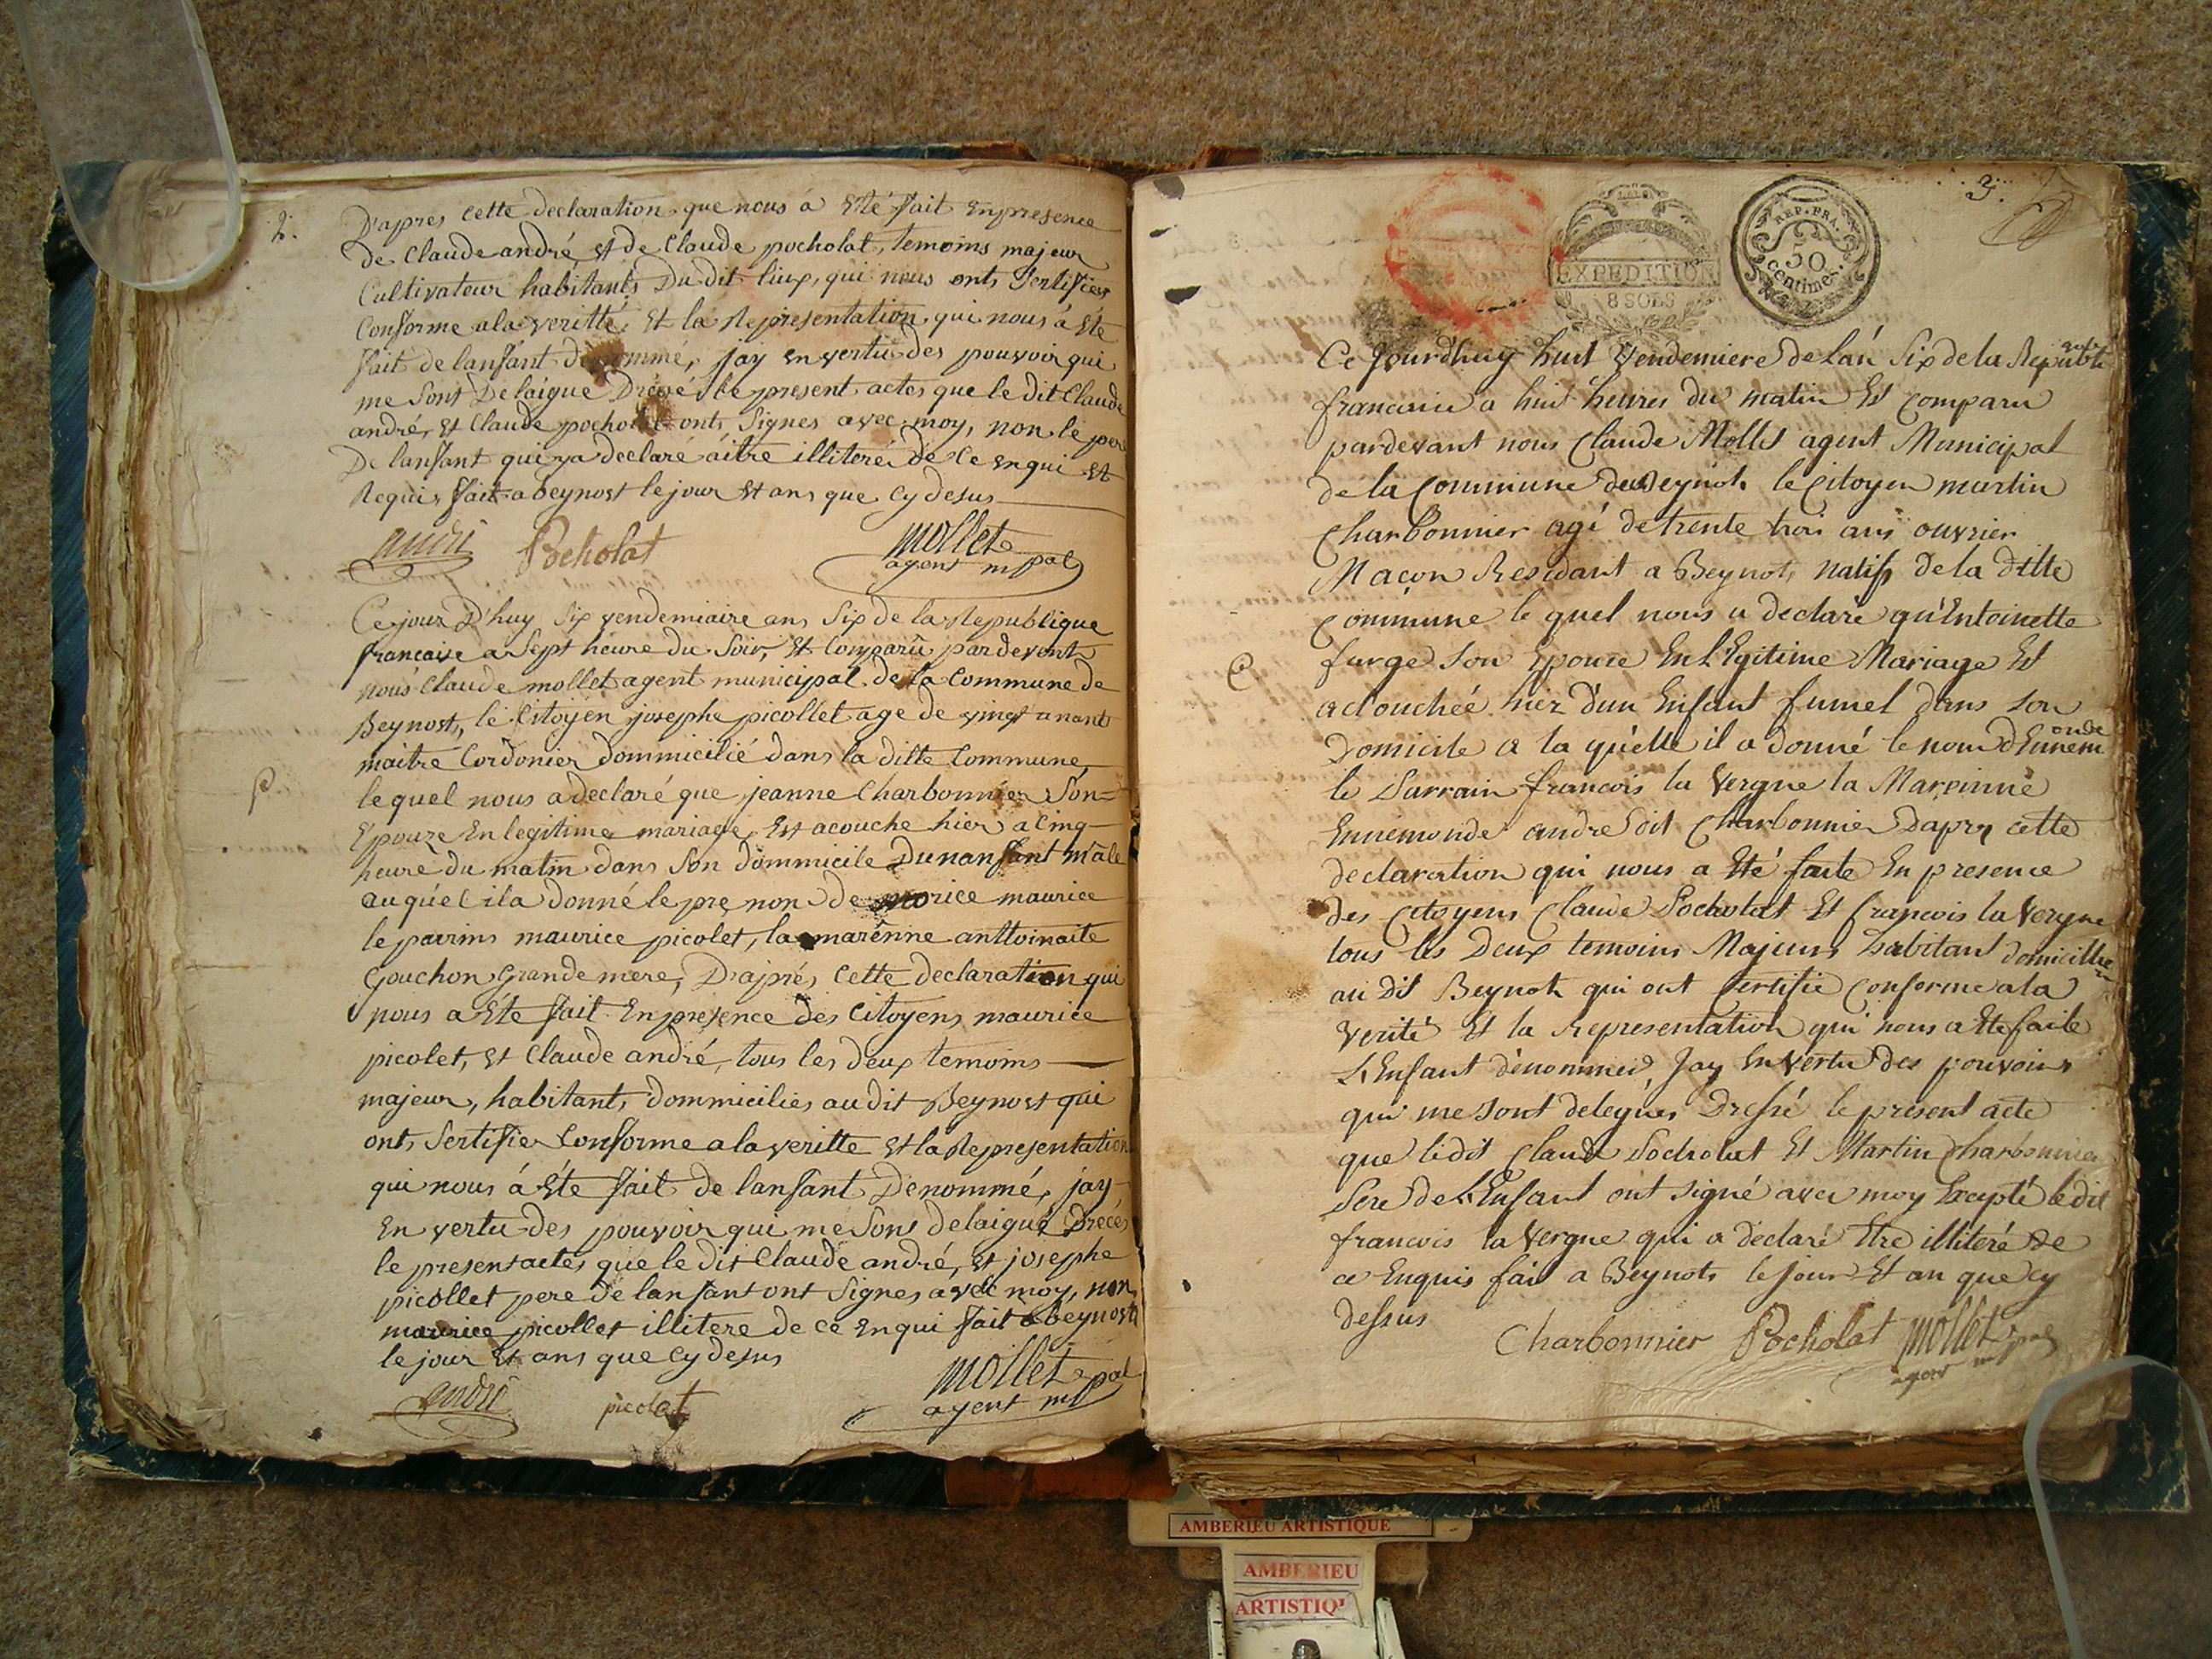 2.
D'apres cette declaration que nous a Eté fait En presence
de Claude andré, et de Claude pocholat, temoins majeur
Cultivateur habitants Du dit lieux, qui nous onts Sertifier
Conforme a la veritté. Et la Representation qui nous à Eté
fait de lansant denommé, jay en vertu des pouvoir qui
me sont Delaigue Drécé le present actes que le dit Claude
andré, et Claude pocholat onts Signes avec moy, non le pere
De lansant qui ya declaré àitre illiteré de Ce enqui et
Requis fait a beynost le jour et ans que Cy desus
andré Pocholat mollet
agent mpal
Ce jour D'huy Six vendemiaire ans Six de la Republique
francaise a Sept heure du Soir, Et Comparû pardevent
nous Claude mollet agent municipal de la Commune de
Beynost, le Citoyen josephe picollet age de vingt un ants
maitre Cordonier dommicilié dans la ditte Commune,
le quel nous a declaré que jeanne Charbonnier Son=
Epouze En legitime mariage, Est acouche hier a Cinq
heure du matin dans Son dommicile Dunansant mâle
au quéel il a Donné le pre non de morice maurice
le parrins maurice picolet, la marênne anttoinaite
Gouchon Grande mere, D'aprés Cette declaration qui
nous a Eté fait En presence des Citoyens maurice
picolet, et Claude andré, tous les deux temoins
majeur, habitants dommicilies au dit Beynost qui
onts Sertifier Conforme a la veritte et la Representation
qui nous á Eté fait de lansant Denommé, jay
En vertu des pouvoir qui me Sons delaigué Drecés
le present actes que le dit Claude andré, et josephe
picollet pere de lansant ont Signes avec moy, non
maurice picollet illitere de ce enqui fait a beynost
le jour et ans que Cy desus
andré picolat mollet
agent mpal
3.
EXPEDITION
8 SOLS
REP. FRA.
50
centimes.
Ce Jourdhuy huit Vendemiere de lan Six de la Republique
francaise a huit heures du matin Est comparu
pardevant nous Claude Mollet agent Municipal
de la Commune de Beynost le Citoyen martin
Charbonnier agé de trente trois ans ouvrier
Macon Residant a Beynost natifs de la ditte
Commune le quel nous a declaré qu'Entoinette
furge son Epouse En L'Egitime Mariage Est
aclouchée hier d'un Enfant fumel dans son
Domicile a la quelle il a donné le nom d'Ennemonde
le Parrain francois la Vergne la Mareinne
Ennemonde andre Soit Charbonnier Dapres cette
declaration qui nous a Eté faite En presence
des Citoyens Claude Pocholat Et francois la Vergne
tous les Deux temoins Majeurs habitant domicillie
au dit Beynost qui ont Certifié Conforme a la
verité Et la Representation qui nous a Ete faite
L'Enfant dénommé, Jay En Vertu des pouvoirs
qui me sont delegues Dressé le présent acte
que ledit Claude Pocholat Et Martin Charbonnier
Pere de L'Enfant ont signé avec moy Excepté ledit
francois la Vergne qui a déclaré Etre illiteré de
ce Enquis fait a Beynost le jour Et an que cy
dessus
Charbonnier Pocholat mollet
agent mpal
AMBERIEU ARTISTIQUE
AMBERIEU
ARTISTIQ